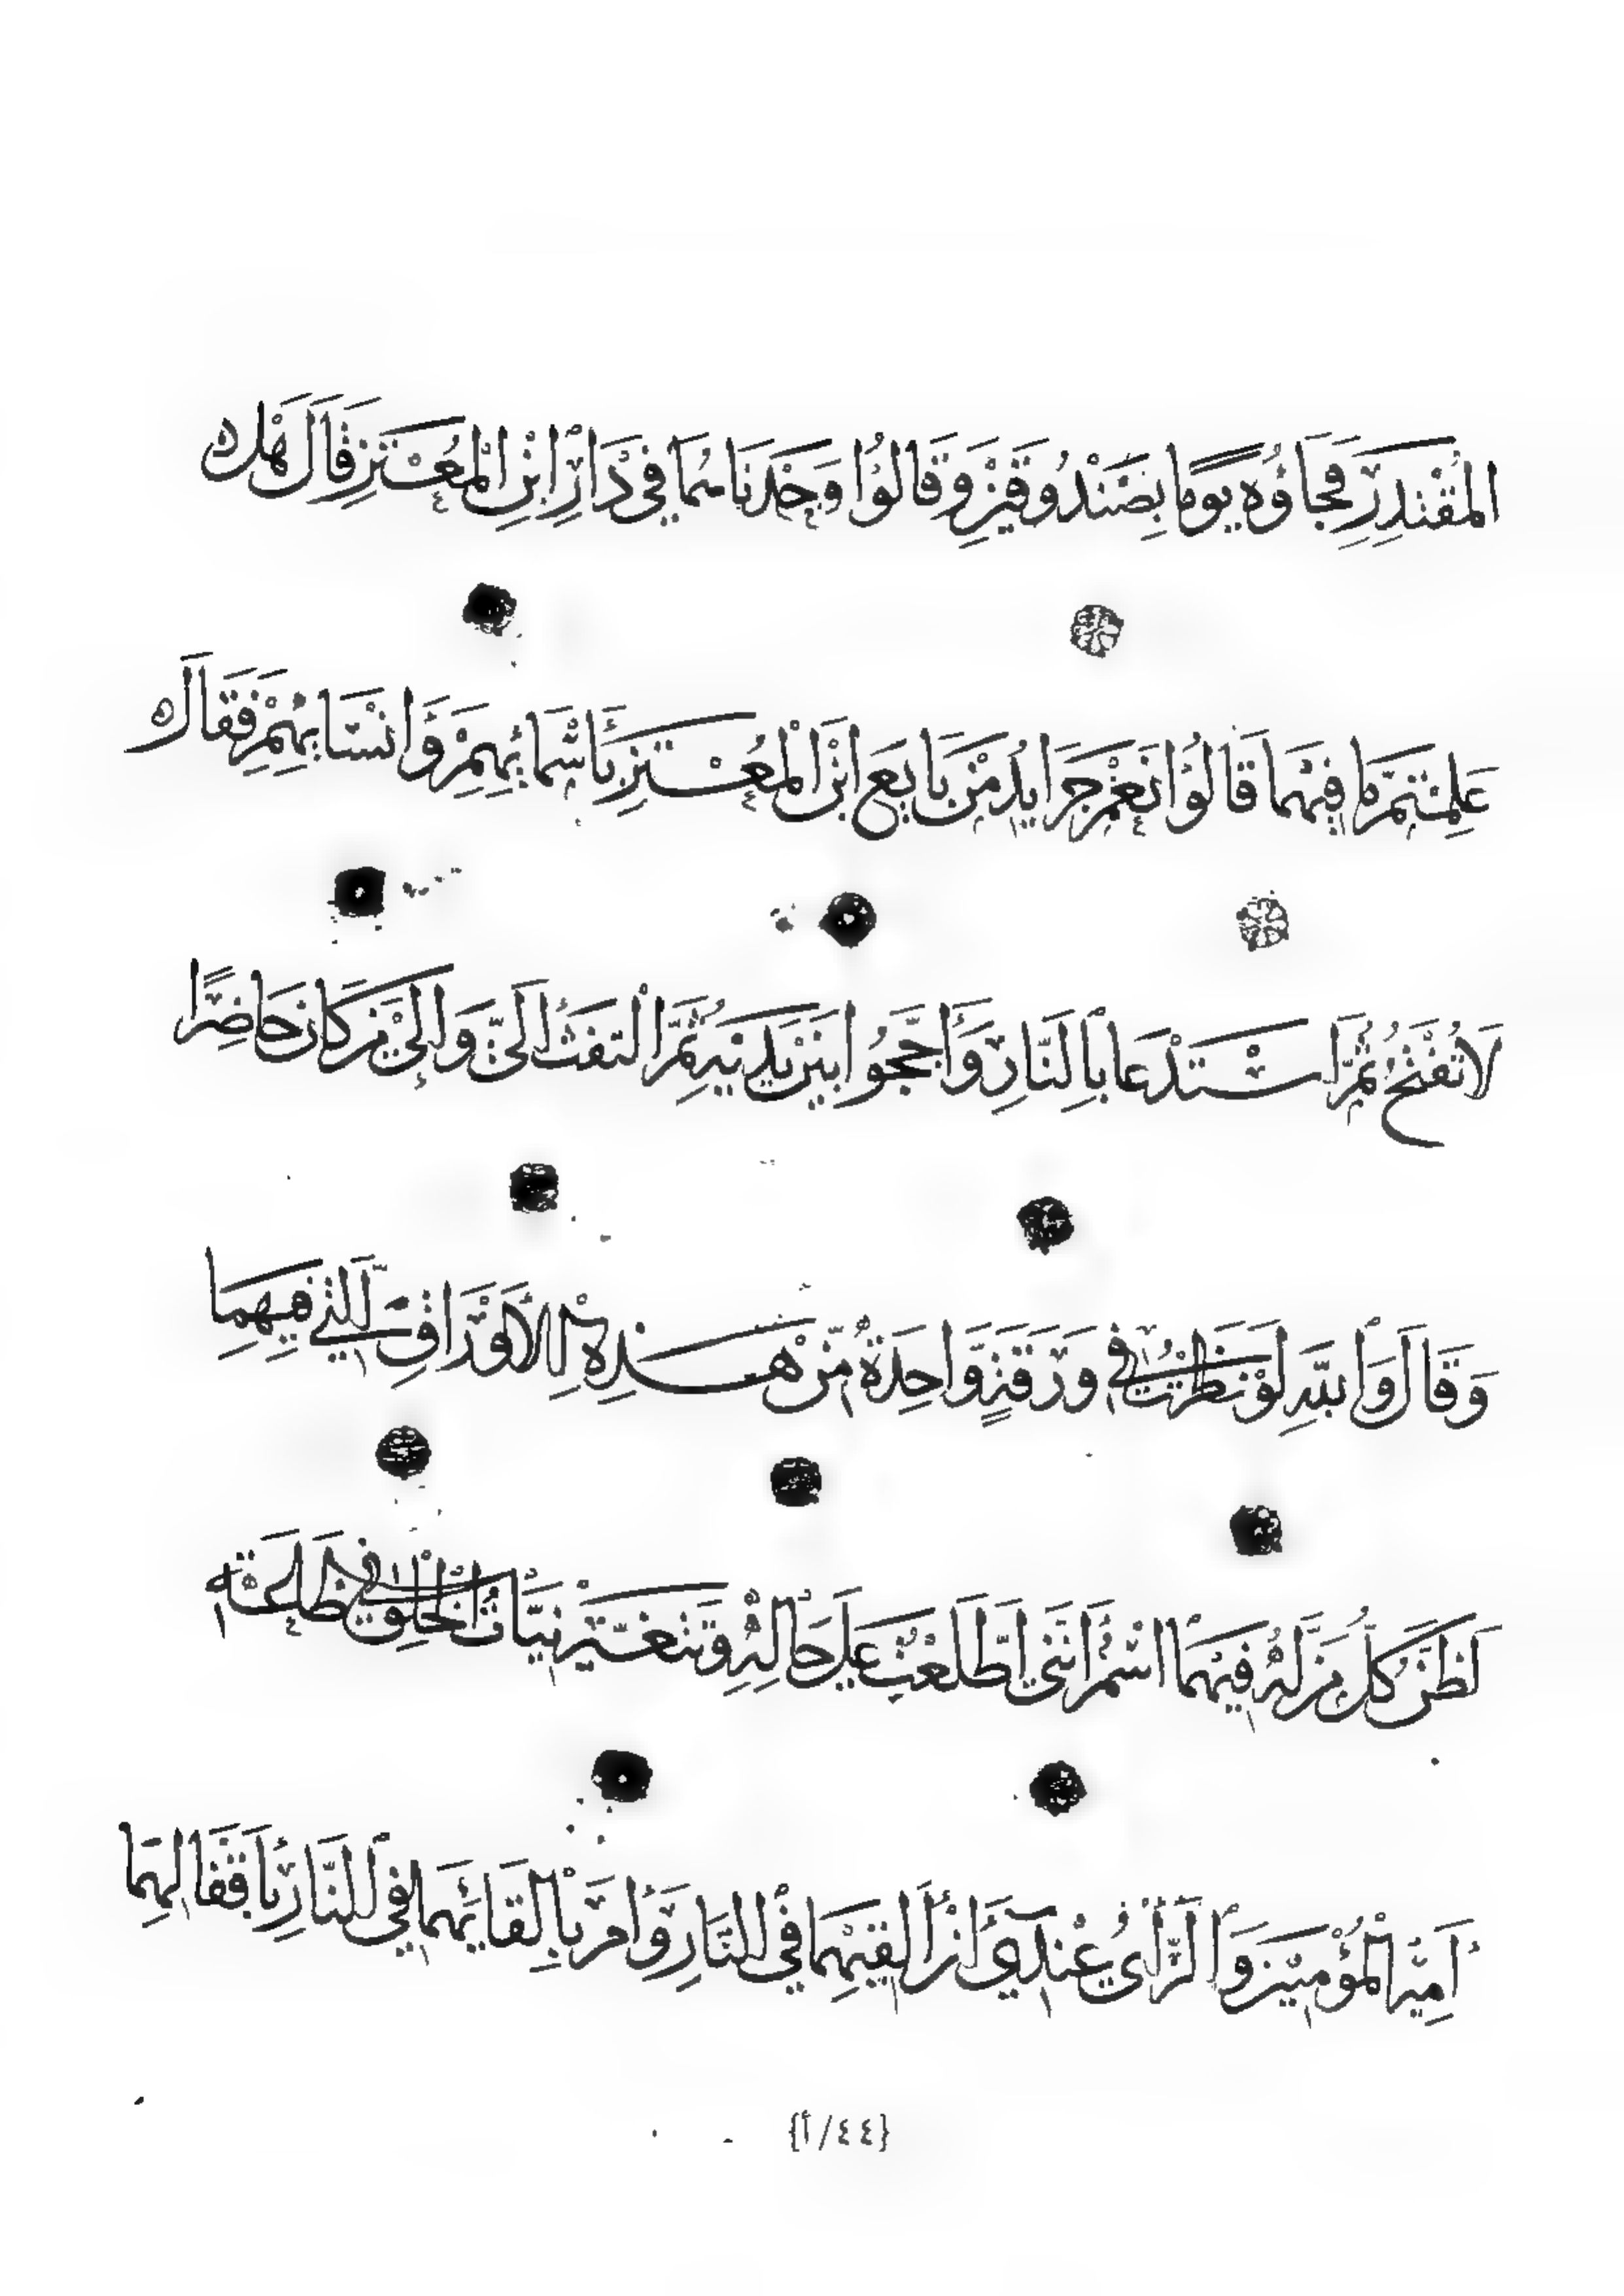 المُقْتَدِرِ فَجَاؤُهُ يَوْمًا بِصَنْدُوقَيْنِ وَقَالُوْا وَجَدْنَاهُمَا فِي دَارِ ابْنِ الْمُعْتَزِّ فَقَالَ هَلْ
عَلِمْتُمْ مَا فِيْهِمَا قَالُوْا نَعَمْ جَرَايِدُ مَنْ بَايَعَ ابْنَ الْمُعْتَزِّ بِأَسْمَائِهِمْ وَأَنْسَابِهِمْ فَقَالَ
لَا تُفْتَحُ ثُمَّ اسْتَدْعَا بِالنَّارِ وَأَجَّجُوا بَيْنَ يَدَيْهِ ثُمَّ الْتَفَتَ إِلَيَّ وَإِلَى مَنْ كَانَ حَاضِرًا
وَقَالَ وَاللّٰهِ لَوْ نَظَرْتُ فِي وَرَقَةٍ وَّاحِدَةٍ مِّنْ هٰذِهِ الْأَوْرَاقِ الَّتِي فِيْهِمَا
لَظَنَّ كُلُّ مَنْ لَهُ فِيْهِمَا اسْمٌ أَنَّنِي اطَّلَعْتُ عَلَى حَالِهِ وَتَتَغَيَّرُ نِيَّاتُ الْخَلْقِ فِي طَاعَةِ
أَمِيْرِ الْمُؤْمِنِيْنَ وَالرَّأْيُ عِنْدِي أَنْ أُلْقِيَهُمَا فِي النَّارِ وَأَمَرَ بِإِلْقَائِهِمَا فِي النَّارِ بِأَقْفَالِهِمَا
{٤٤/أ}